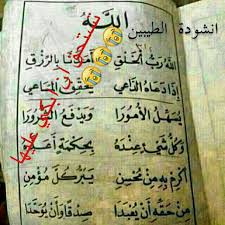 انشودة الطيبين
اللّٰه
اللهُ رَبُّ الْخَلْقِ أَمَدَّنَا بِالرِّزْقِ
إِذَا دَعَاهُ الدَّاعِي يُحَقِّقُ الْمَسَاعِي
يُسَهِّلُ الْأُمُورَا وَيَدْفَعُ الشُّرُورَا
وَكُلُّ شَيْءٍ عِنْدَهُ بِحِكْمَةٍ أَعَدَّهُ
أَكْرِمْ بِهِ مِنْ مُحْسِنِ بِبِرِّ كُلِّ مُؤْمِنِ
مِنْ حَقِّهِ أَنْ يُعْبَدَا صِدْقًا وَأَنْ يُوَحَّدَا